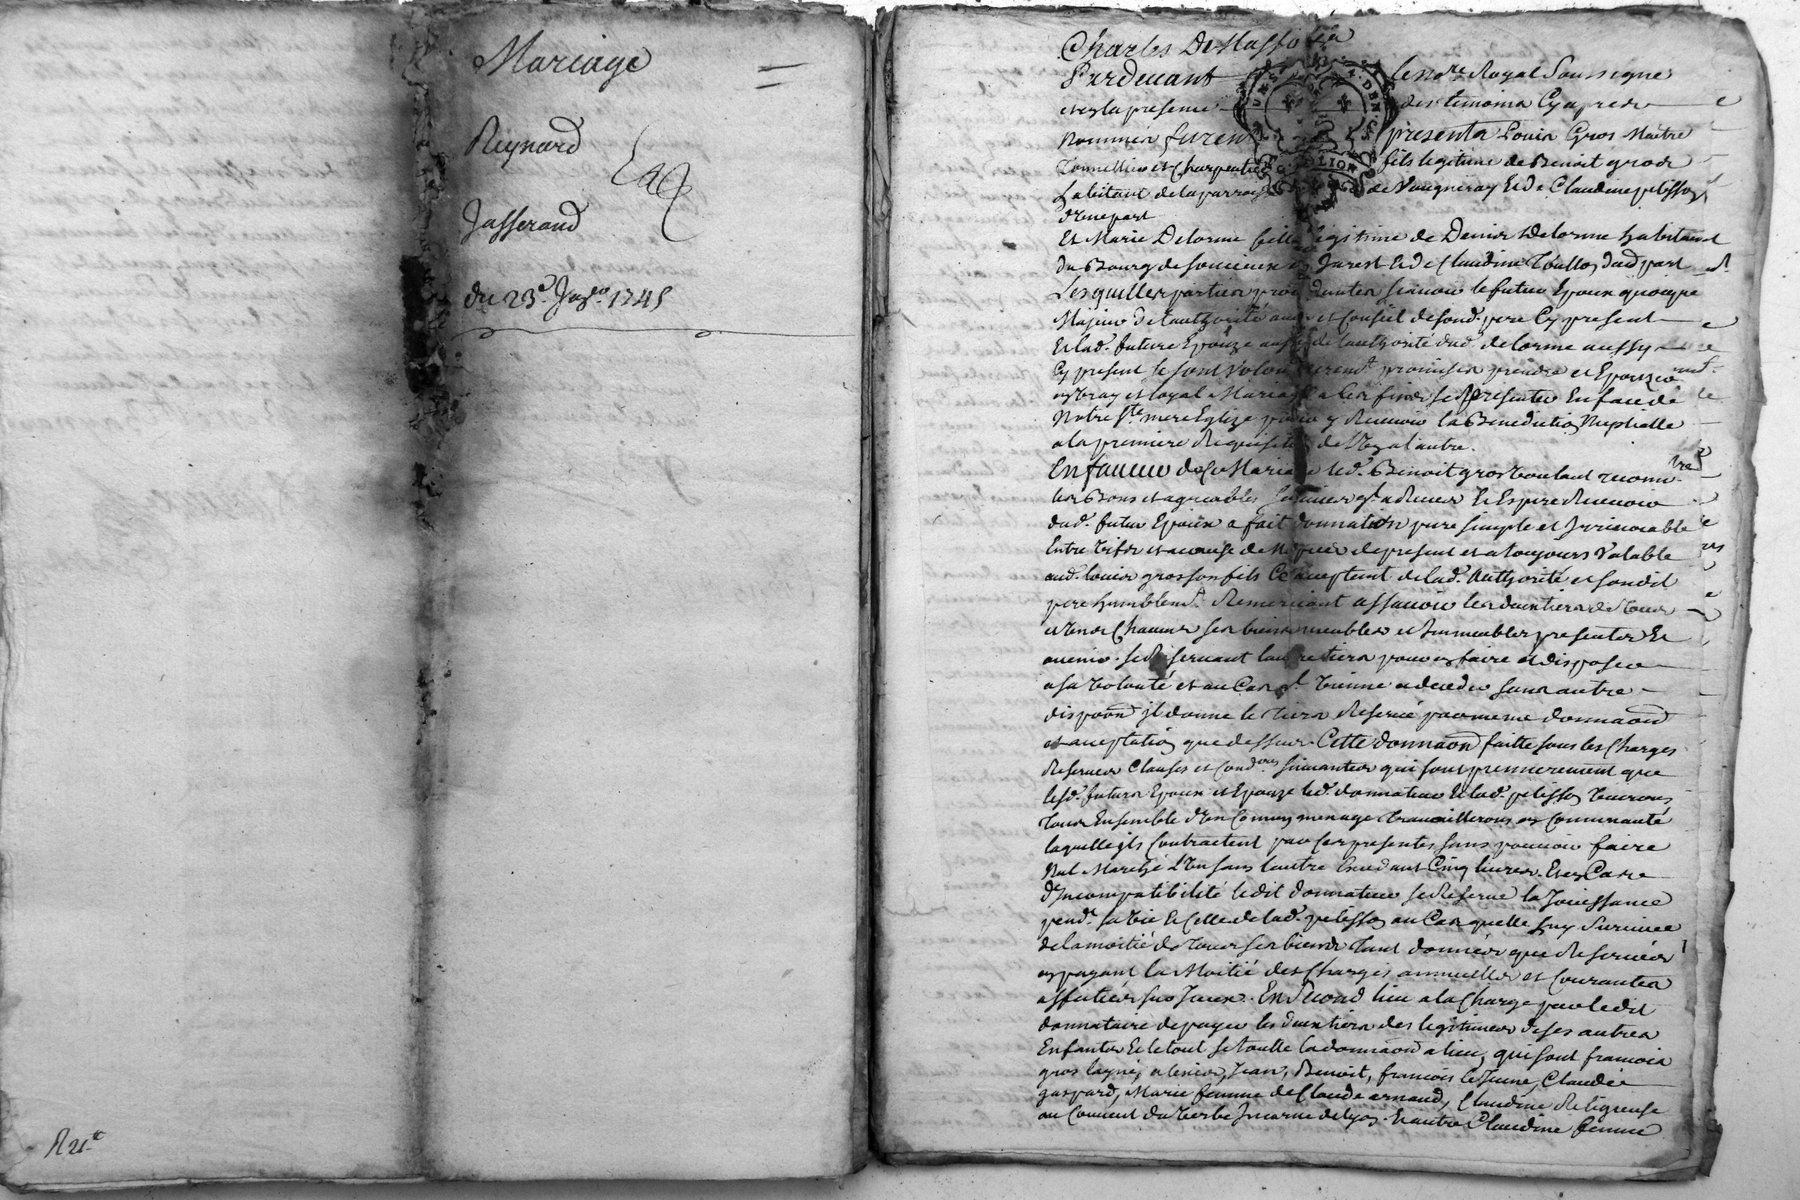 Mariage
Reynard
Jasserand
du 23e. 1745
R 21e
Charles De Masso
Pardevant le nore Royal Soussigné
et en la présence des temoins Cy apres
Nommés furent présents Louis Gros Maitre
Tonnellier et Charpentier fils legitime de Benoit gros
habitant de la parroisse de Vaugneray Et de Claudine pelisson
d'Une part
Et Marie Delorme fille legitime de Denis Delorme habitant
du Bourg de soucieux en Jarest Et de Claudine d'aud. part
Lesquelles parties procédantes scavoir le futur Epoux quoyque
Majeur de l'authorité avis et Conseil de sond. pere Cy present
Et lad. future Epouze de l'authorité dud. delorme aussy
Cy present se sont Volontairemt. promis prendre et Epouzer
en Vray et loyal Mariage a Ces fins se presenter En face de
Notre Ste. mere Eglize pour y Recevoir la Benediction Nuptialle
a la premiere Requisition de l'Un a l'autre.
En faveur de Ce Mariage led. Benoit gros Voulant
les Bons et agreables services qu'il a Receu Et Espere Recevoir
dud. futur Epoux a fait donnation pure simple et Irrevocable
Entre Vifs et a cause de Noces de present et a toujours Valable
aud. louis gros son fils Ce acceptant de lad. Authorité et sondit
pere humblemt. Remerciant assavoir les deux tiers de tous
et Uns Chacuns ses biens meubles et Immeubles presents Et
avenir se Reservant l'autre tiers pour en faire et disposer
a sa Volonté et au Cas qu'il Vienne a deceder sans autre
dispoon. Il donne le tiers Reservé par meme donnaon
et acceptation que dessus. Cette donnaon faitte sous les Charges
Reserves Clauses et Condons suivantes qui sont premierement que
lesd. futurs Epoux et Epouze led. donnateur Et lad. pelisson Vivrons
tous Ensemble d'Un Comun menage travaillerons en Communauté
laquelle ils Contractent par Ces presentes sans pouvoir faire
Nul Marché l'Un sans l'autre Excedant Cinq livres. Et en Cas
d'Incompatibilité ledit donnateur se Reserve la Jouissance
pendt. sa Vie Et Celle de lad. pelisson au Cas quelle luy Survive
de la moitié de tous ses biens tant donnés que Reservés
en payant la Moitié des Charges annuelles et Courantes
affectées sur Iceux. En Second lieu a la Charge par ledit
donnataire de payer les deux tiers des legitimes de ses autres
Enfants Et le tout si toutte la donnaon a lieu, qui sont francois
gros layné, Jean, Benoit, francois le Jeune, Claude
gaspard, Marie femme de Claude arnaud, Claudine Religieuse
au Couvent du Verbe Incarné de Lyon. Et autre Claudine femme